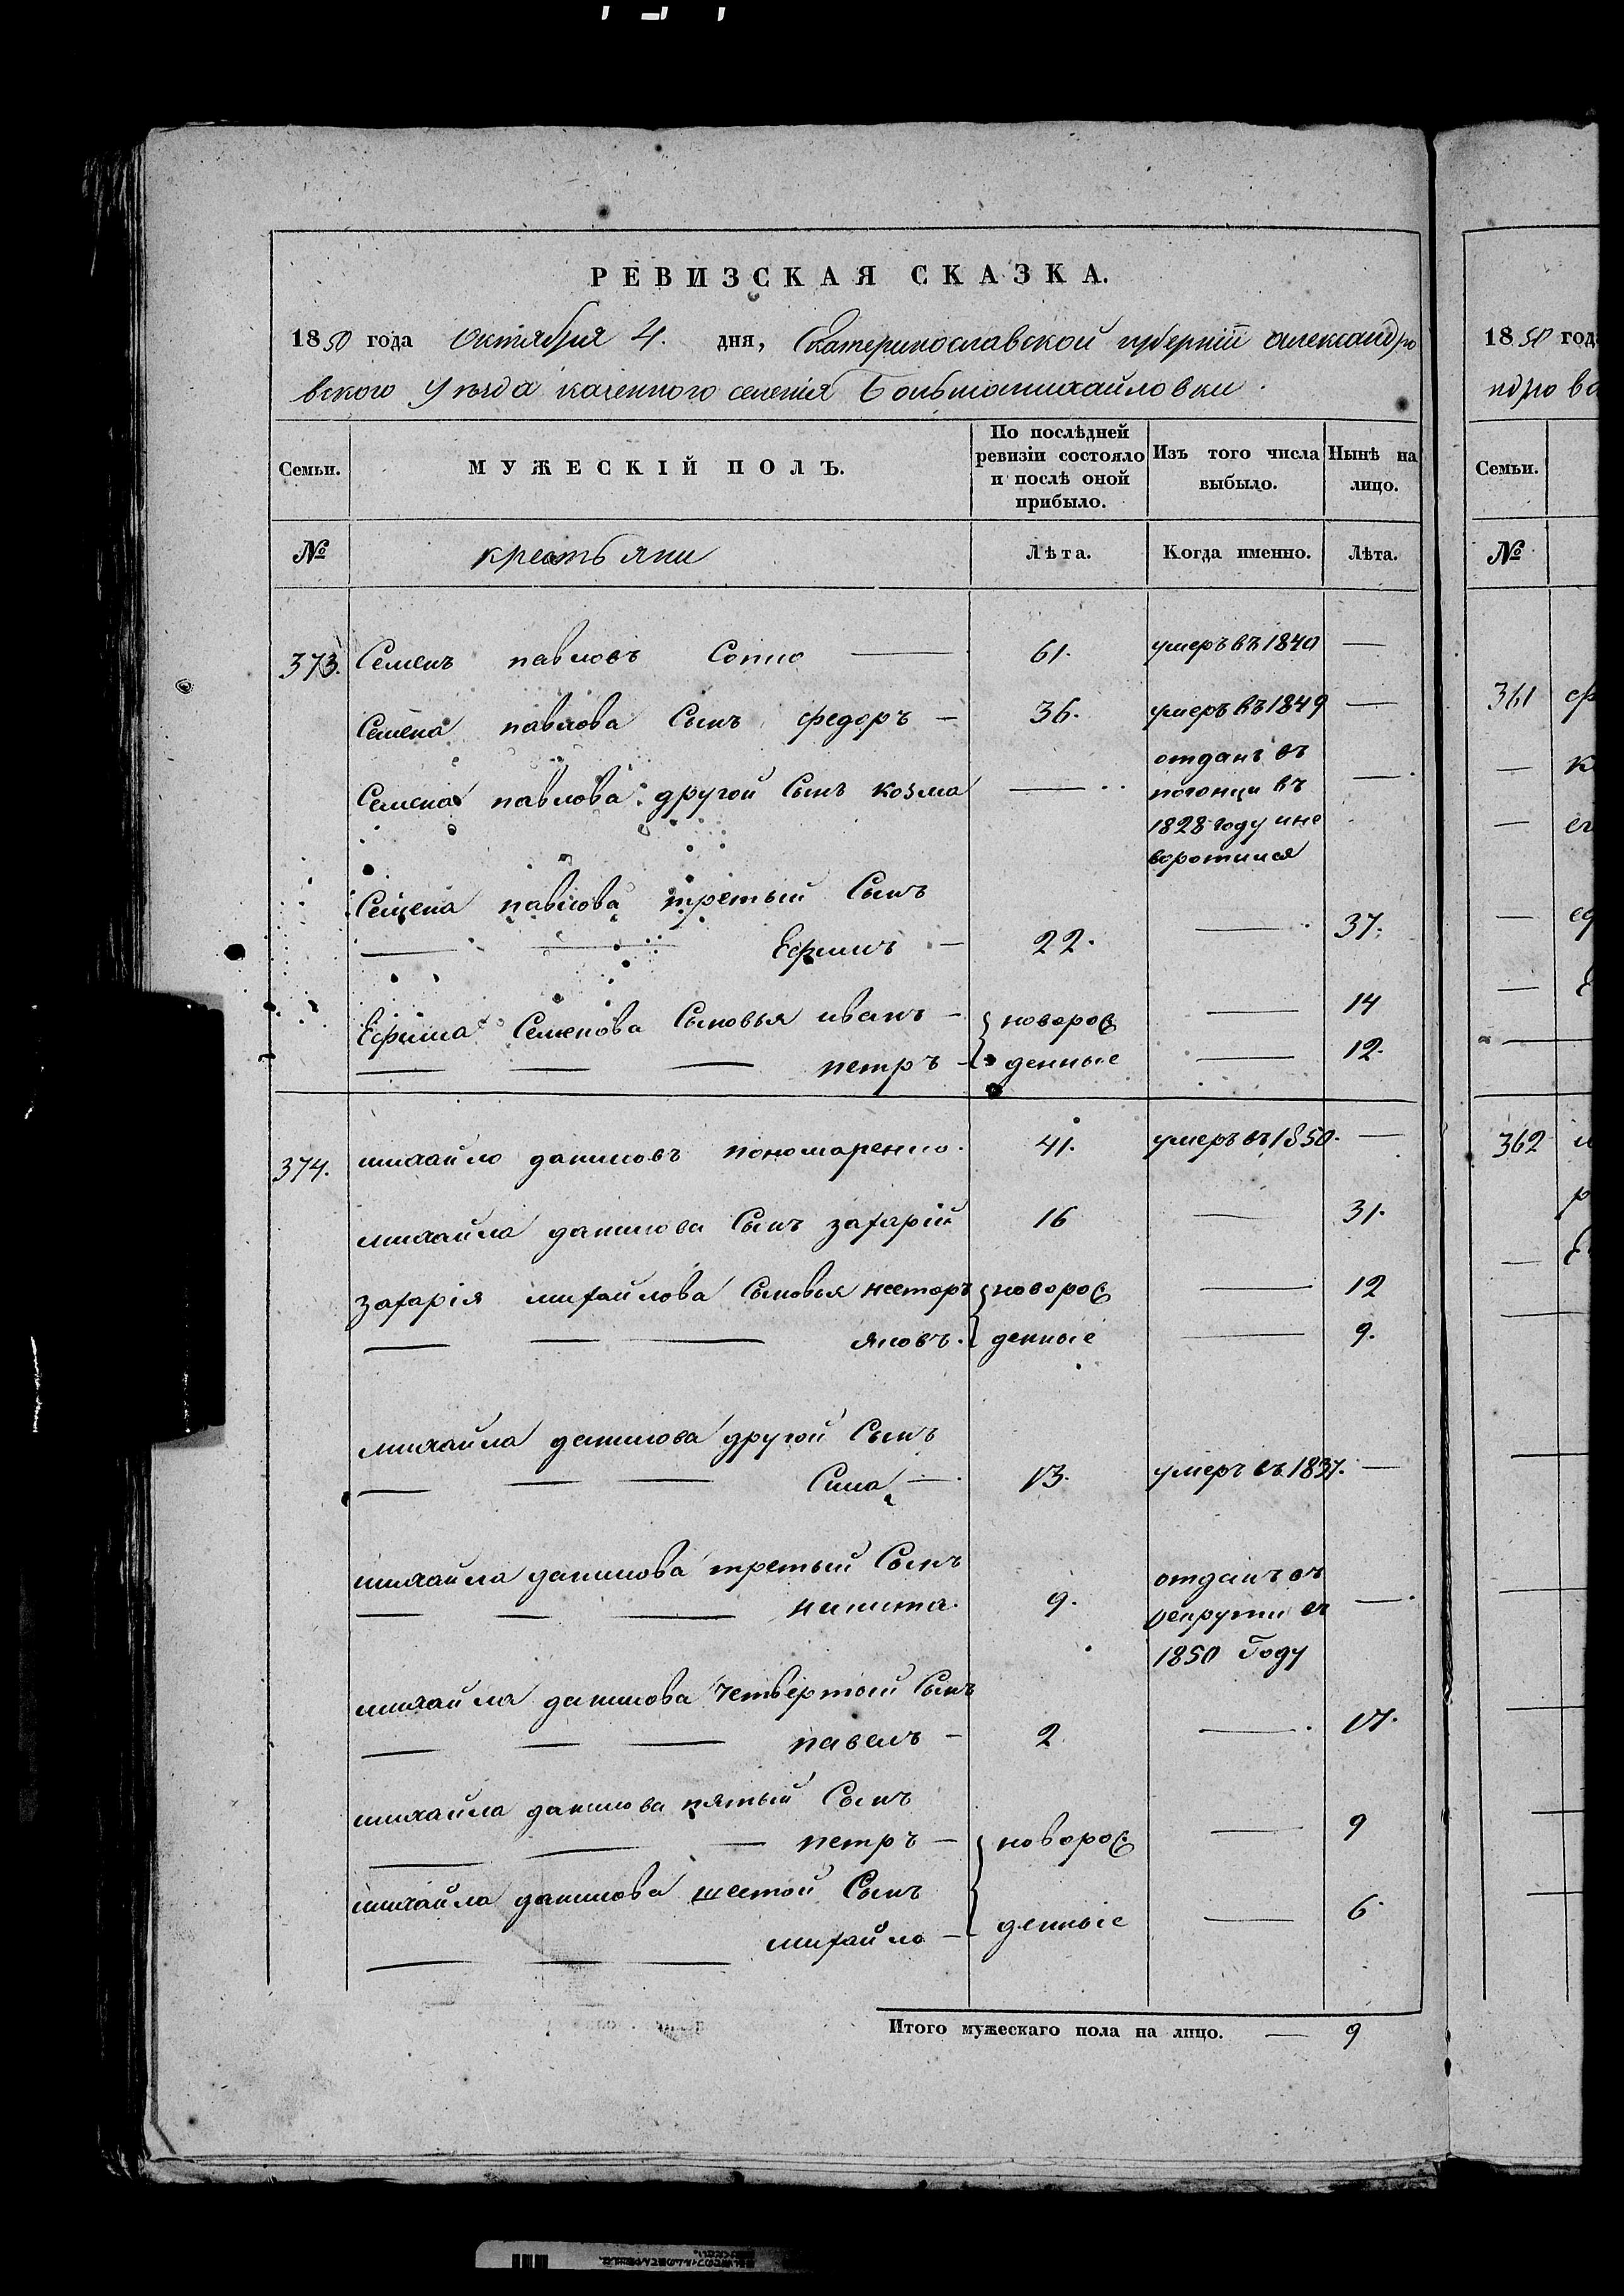 РЕВИЗСКАЯ СКАЗКА.
1850 года Октября 4. дня, Екатеринославской губернiи александро
вского Уезда казенного селенiя Большомихайловки.
Семьи.
МУЖЕСКIЙ ПОЛЪ.
По послѣдней ревизiи состояло и послѣ оной прибыло.
Изъ того числа выбыло.
Нынѣ на лицо.
№ крестьяни Лѣта. Когда именно. Лѣта.
373. Семенъ павловъ Сопно — 61. умеръ въ 1840 —
Семена павлова Сынъ федоръ — 36. умеръ въ 1849 —
Семена павлова другой Сынъ козма — отданъ въ
погонци въ —
1828 году и не
воротился
Семена павлова третьий Сынъ
— — Ефимъ — 22. — 37.
Ефима Семенова Сыновья иванъ — новорож — 14
— — — петръ — денные — 12.
374. михайло даниловъ пономаренко. 41. умеръ въ 1850. —
михайла данилова Сынъ захарiй 16 — 31.
захарiя михайлова Сыновья несторъ новорож — 12
— — — яковъ. денныiе — 9.
михайла данилова другой Сынъ
— — — Сила — 13. умеръ въ 1837. —
михайла данилова третьий Сынъ
— — — никита. 9. отданъ въ
рекруты въ —
1850 Году
михайла данилова четвертый Сынъ
— — — павелъ — 2 — 17.
михайла данилова пятый Сынъ
— — — петръ — новорож — 9
михайла данилова шестой Сынъ
— — — михайло — денныiе — 6.
Итого мужескаго пола на лицо. — 9
1850 год
ндров
Семьи.
№
361
362